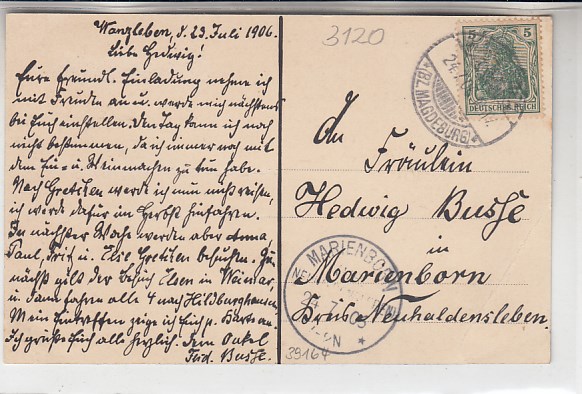 Wanzleben, d. 23. Juli 1906.
Liebe Hedwig!
Eure freundl. Einladung nehme ich
mit Freuden an u. werde mich nächstens
bei Euch einstellen. Den Tag kann ich noch
nicht bestimmen, da ich immer noch mit
dem Ein= u. Einmachen zu tun habe.
Nach Gretchen werde ich nun nicht reisen,
ich werde dafür im Herbst hinfahren.
In nächster Woche werden aber Anna
Paul, Fritz u. Else Gretchen besuchen. Zu=
nächst gilt der Besuch Elsen in Weimar,
u. dann fahren alle 4 nach Hildburghausen.
Mein Eintreffen zeige ich Euch p. Karte an.
Ich grüße Euch alle herzlich. Dein Onkel
Ferd. Busse.
3120
5
DEUTSCHES REICH
(BZ. MAGDEBURG)
An
Fräulein
Hedwig Busse
in
Marienborn
Kreis Neuhaldensleben.
MARIENBORN
39164